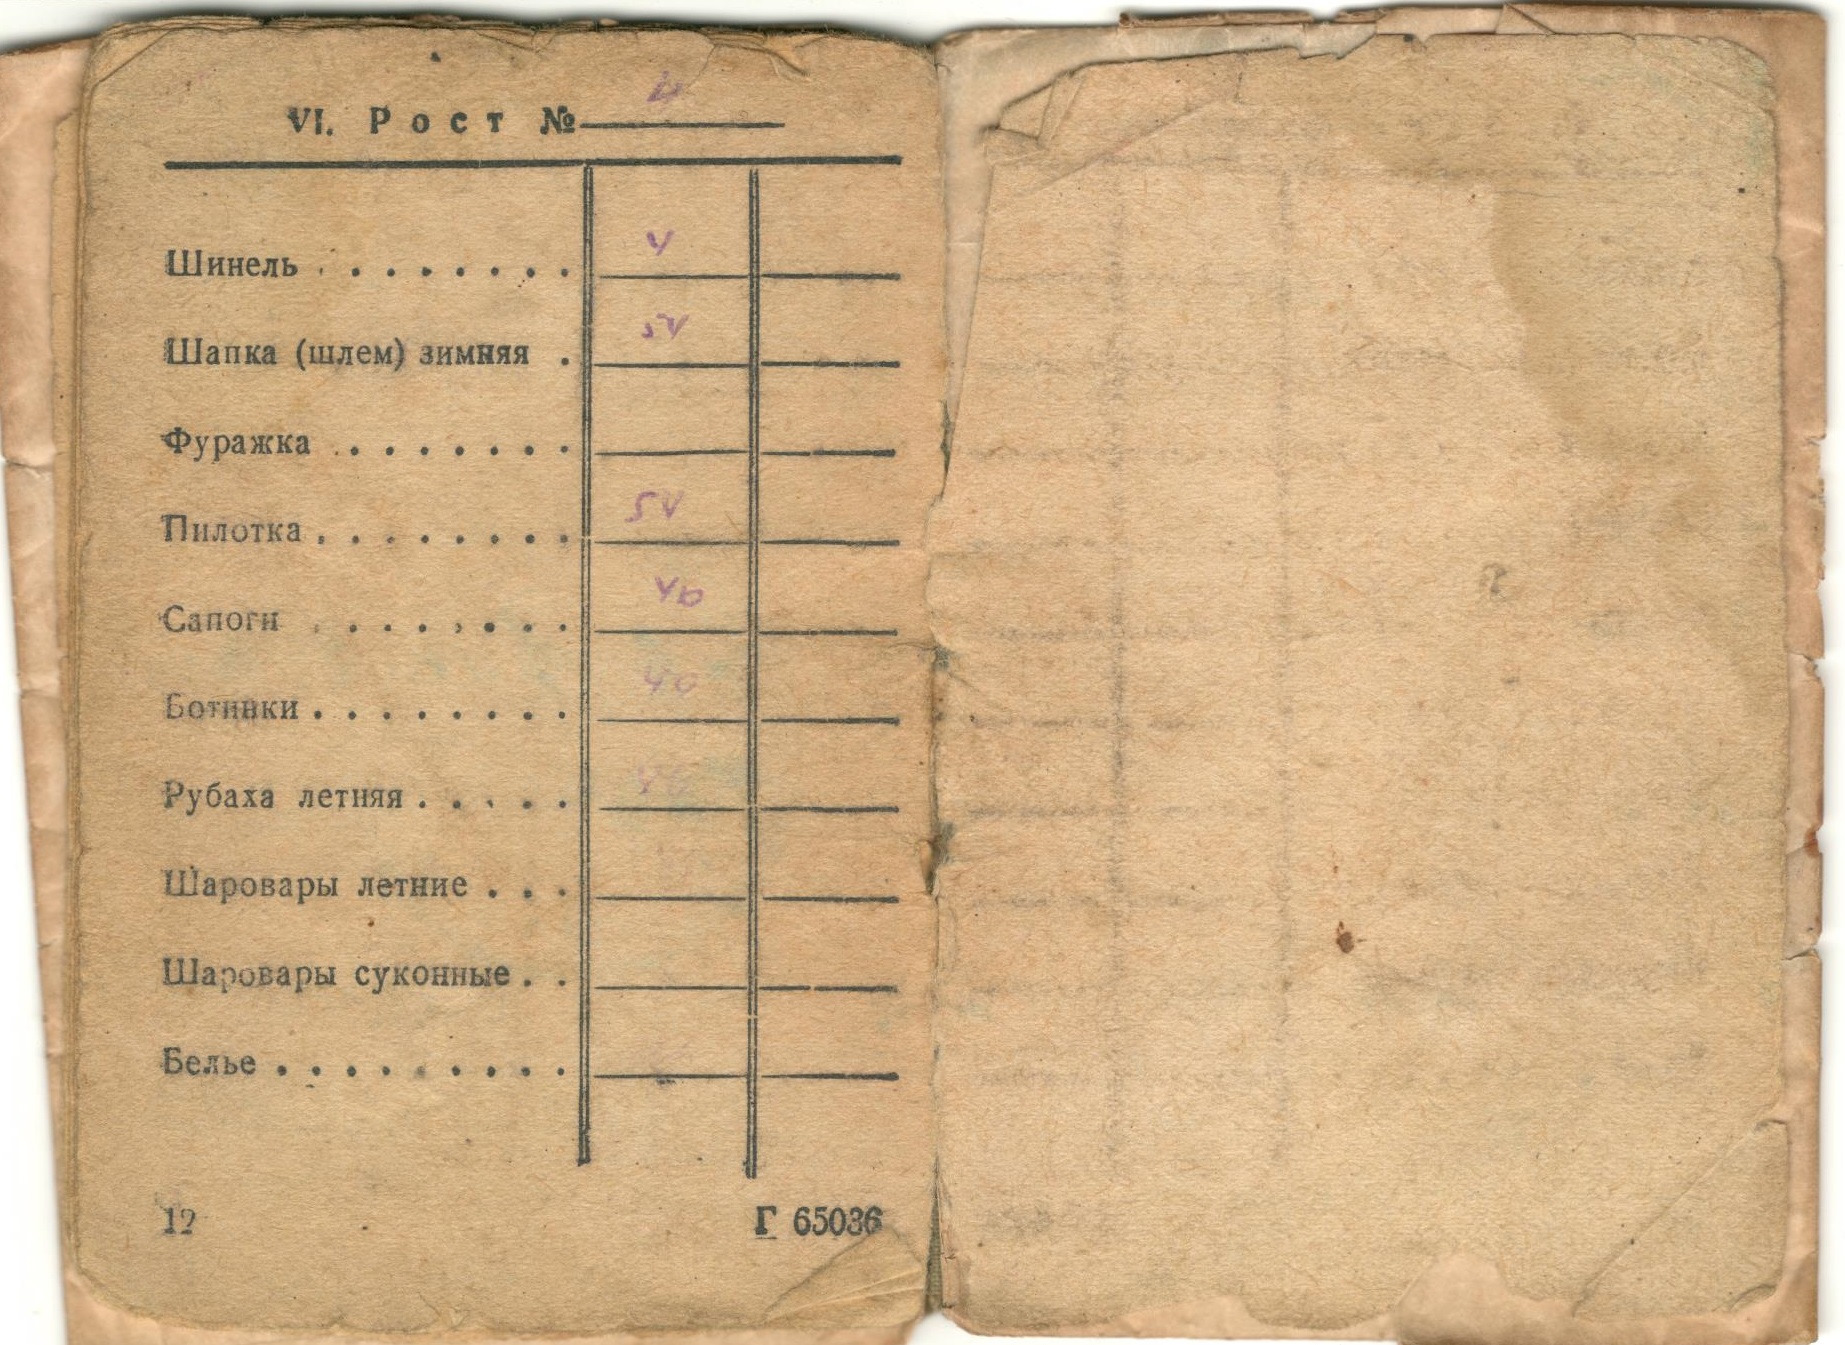 VI. Рост № 4
Шинель . . . . . . . . 4
Шапка (шлем) зимняя . 54
Фуражка . . . . . . .
Пилотка . . . . . . . . 54
Сапоги . . . . . . . . 40
Ботинки . . . . . . . . 40
Рубаха летняя . . . . .
Шаровары летние . . .
Шаровары суконные . .
Белье . . . . . . . . .
12 Г 65036